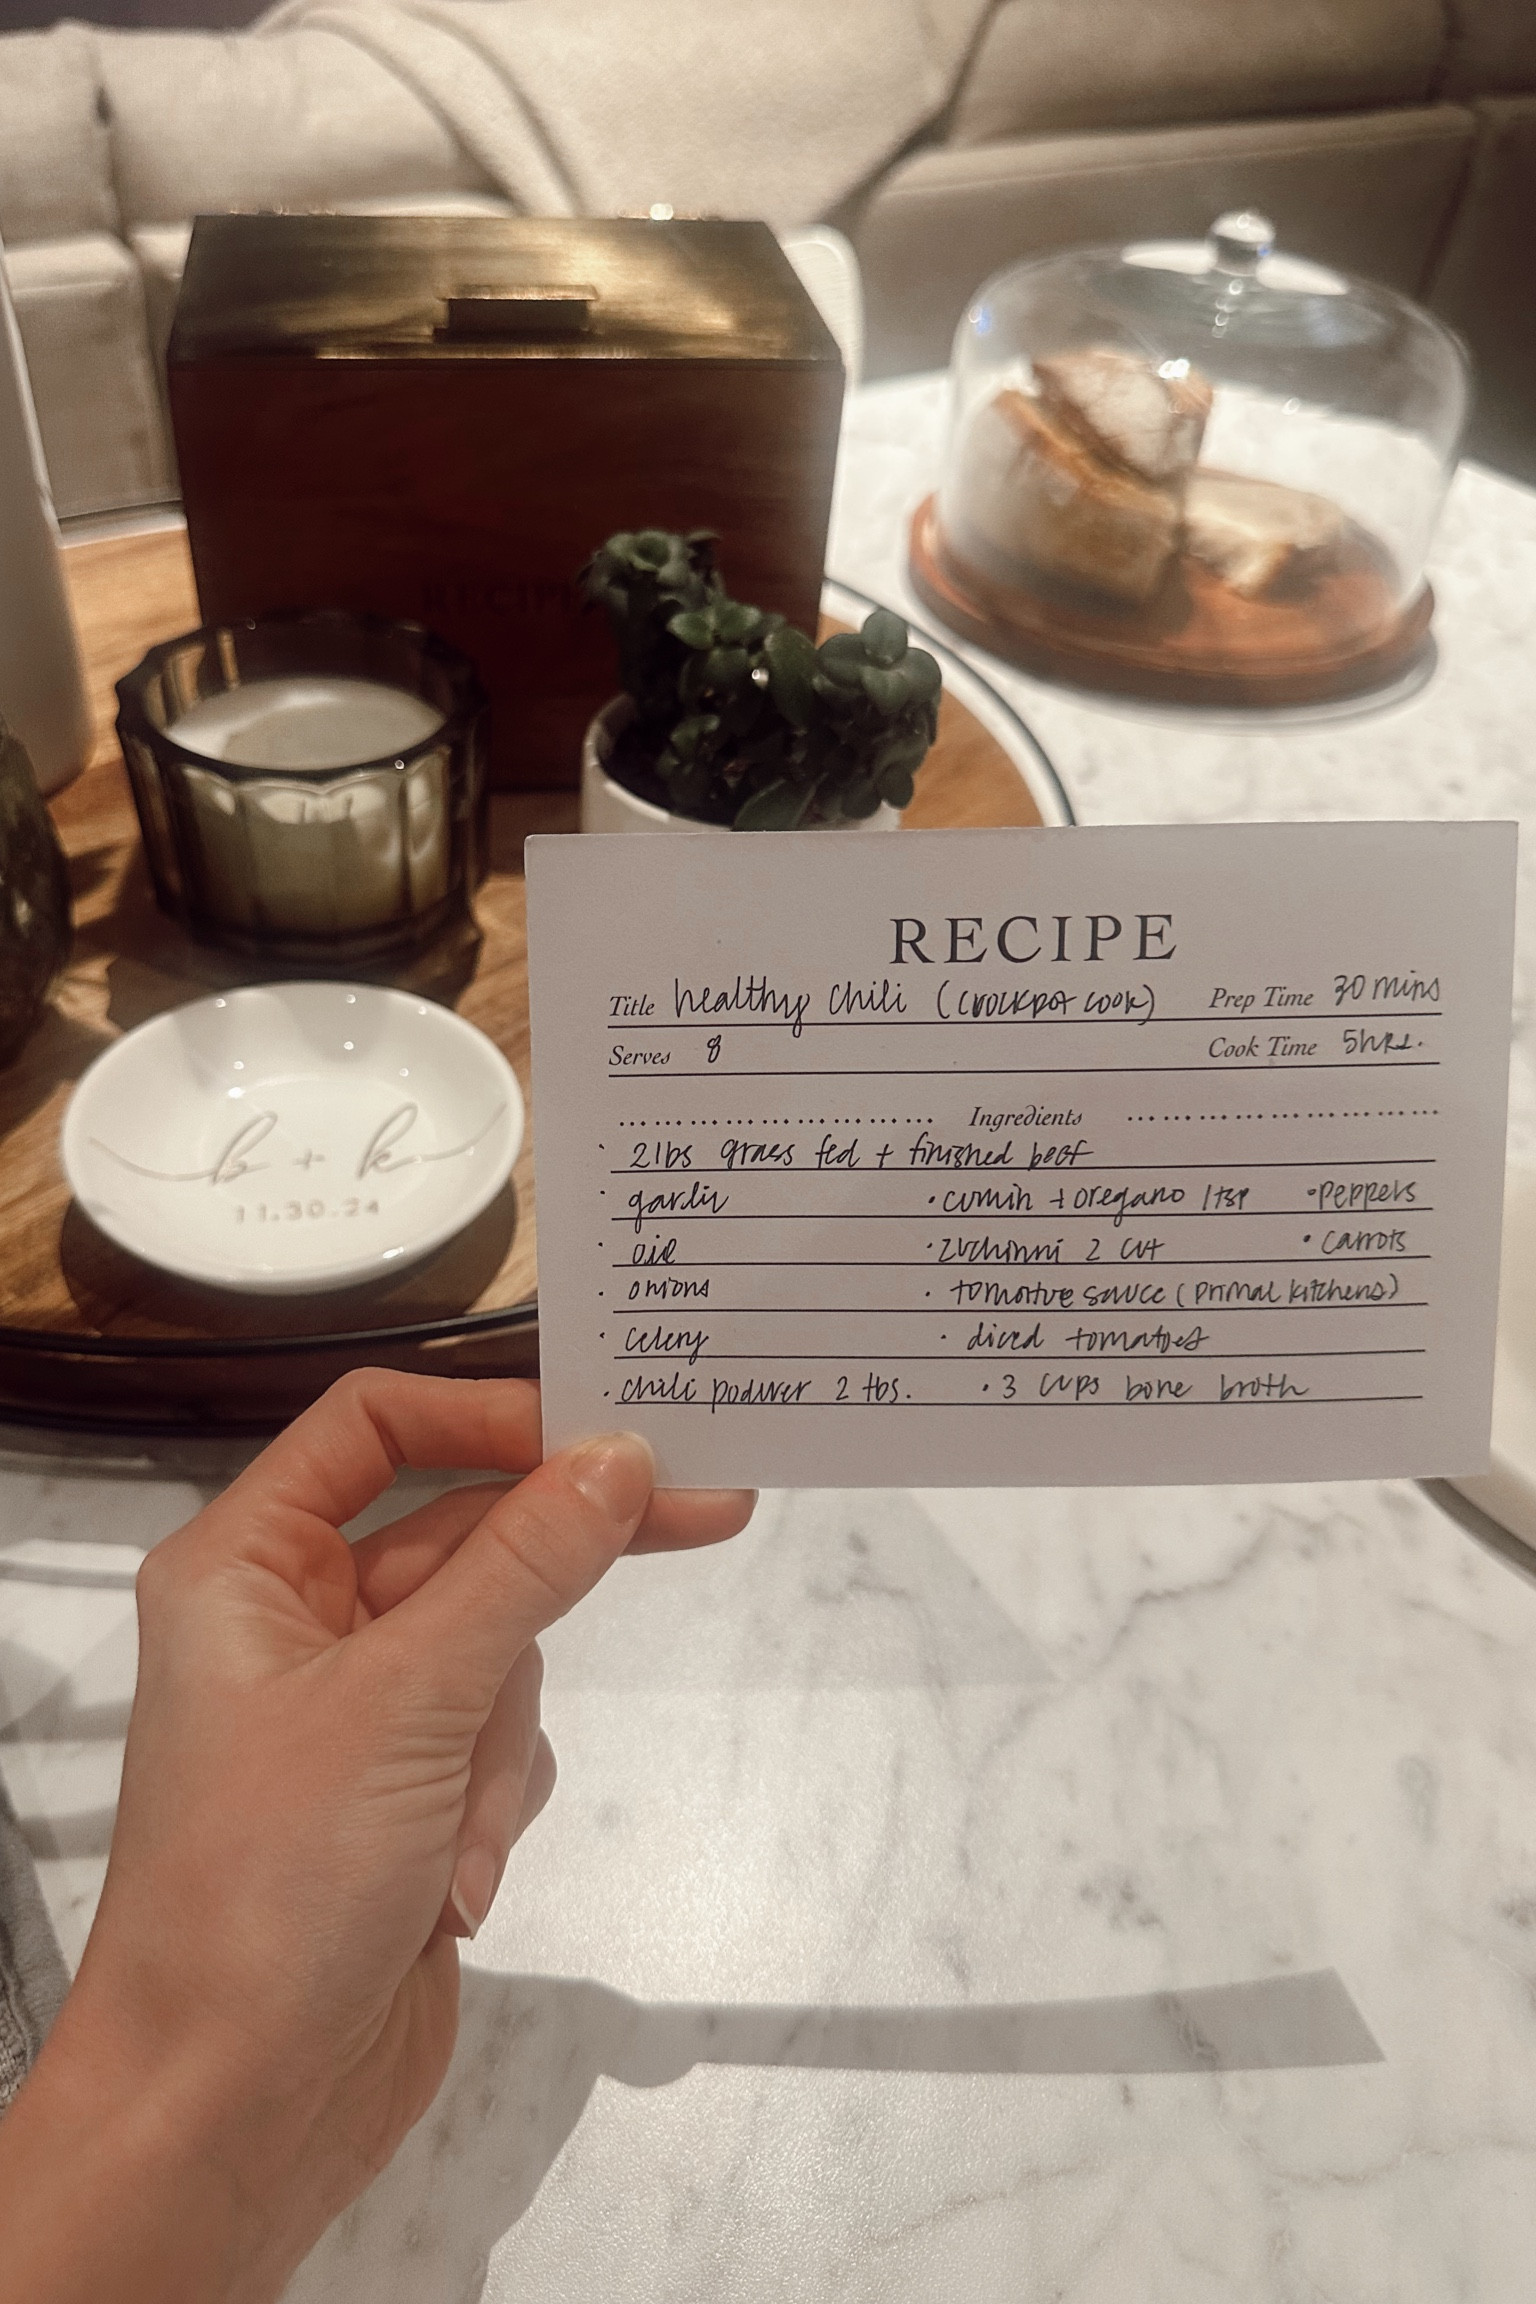 RECIPE
b + k
11.30.24
RECIPE
Title healthy chili (crockpot cook) Prep Time 30 mins
Serves 8 Cook Time 5hrs.
Ingredients
· 2lbs grass fed + finished beef
· garlic · cumin + oregano 1 tsp · peppers
· oil · zuchinni 2 cut · carrots
· onions · tomatoe sauce (primal kitchens)
· celery · diced tomatoes
· chili podwer 2 tbs. · 3 cups bone broth